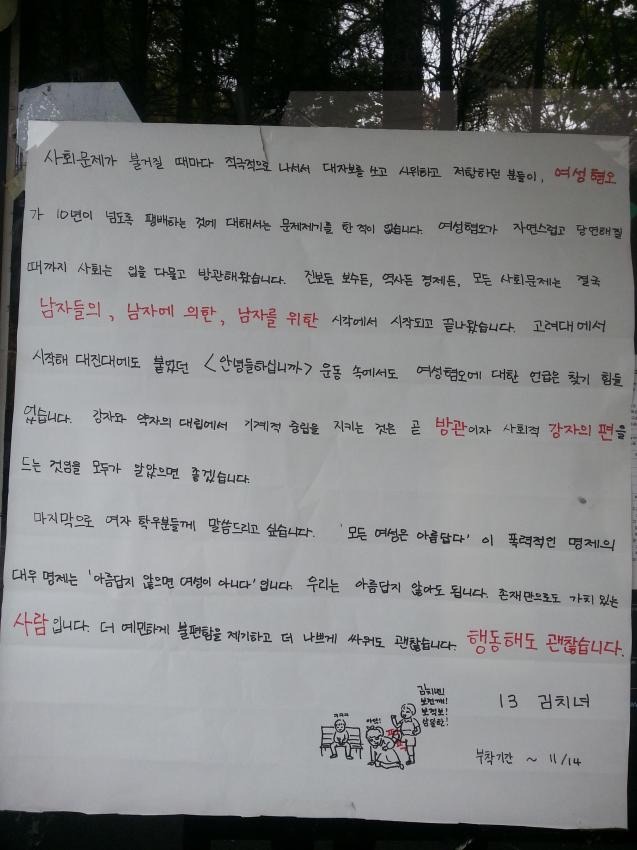 사회문제가 불거질 때마다 적극적으로 나서서 대자보를 쓰고 시위하고 저항하던 분들이, 여성혐오
가 10년이 넘도록 팽배하는 것에 대해서는 문제제기를 한 적이 없습니다. 여성혐오가 자연스럽고 당연해질
때까지 사회는 입을 다물고 방관해왔습니다. 진보든 보수든, 역사든 경제든, 모든 사회문제는 결국
남자들의, 남자에 의한, 남자를 위한 시각에서 시작되고 끝나왔습니다. 고려대에서
시작해 대진대에도 붙었던 <안녕들하십니까> 운동 속에서도 여성혐오에 대한 언급은 찾기 힘들
었습니다. 강자와 약자의 대립에서 기계적 중립을 지키는 것은 곧 방관이자 사회적 강자의 편을
드는 것임을 모두가 알았으면 좋겠습니다.
마지막으로 여자 학우분들께 말씀드리고 싶습니다. '모든 여성은 아름답다' 이 폭력적인 명제의
대우 명제는 '아름답지 않으면 여성이 아니다' 입니다. 우리는 아름답지 않아도 됩니다. 존재만으로도 가치 있는
사람입니다. 더 예민하게 불편함을 제기하고 더 나쁘게 싸워도 괜찮습니다. 행동해도 괜찮습니다.
김치년!
보전깨!
보적보!
삼일한!
ㅋㅋㅋ
13 김치녀
부착기간 ~ 11/14